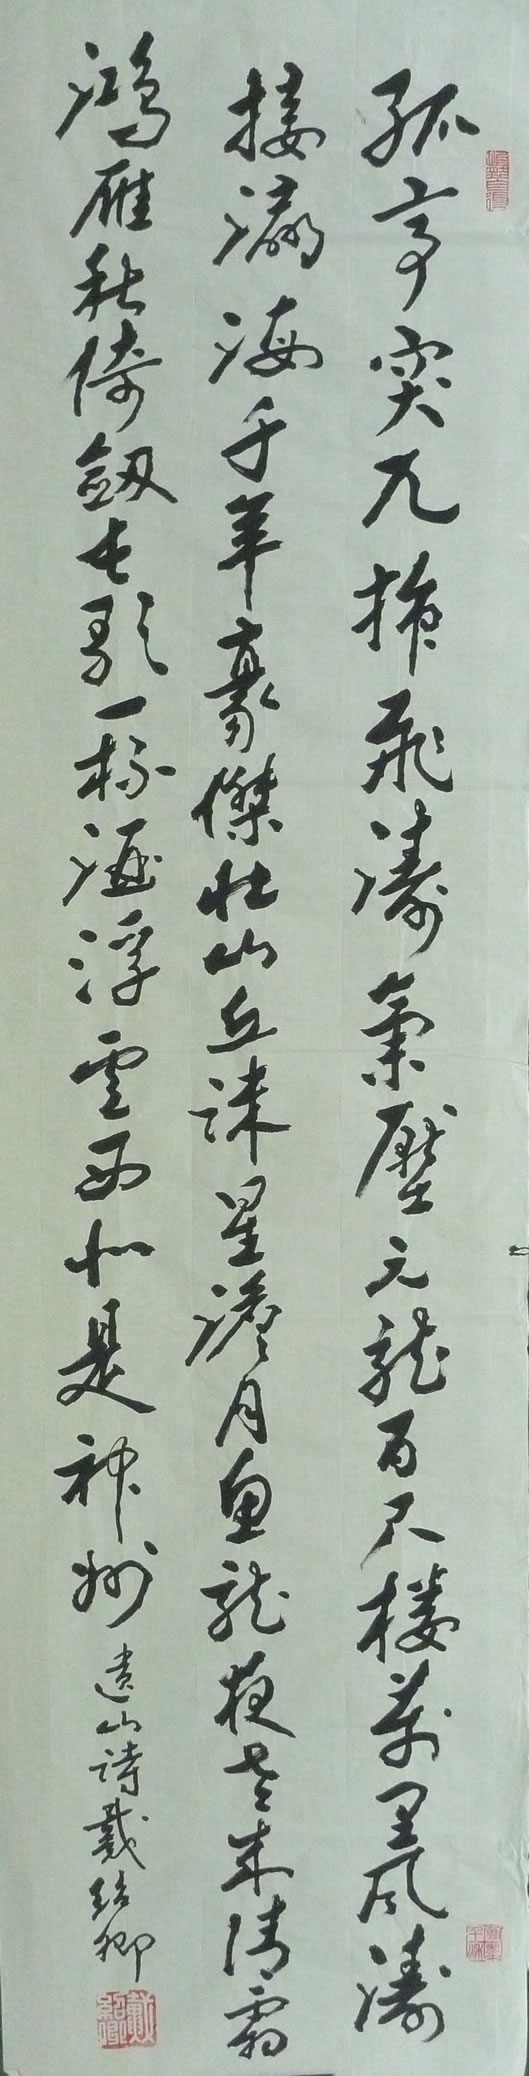 孤亭突兀插飛濤氣壓元龍百尺樓萬里風濤
接瀛海千年豪傑壯山丘疎星澹月魚龍夜老來清霜
鴻雁秋倚劔長歌一杯酒浮雲西北是神州
遺山詩戴紹卿